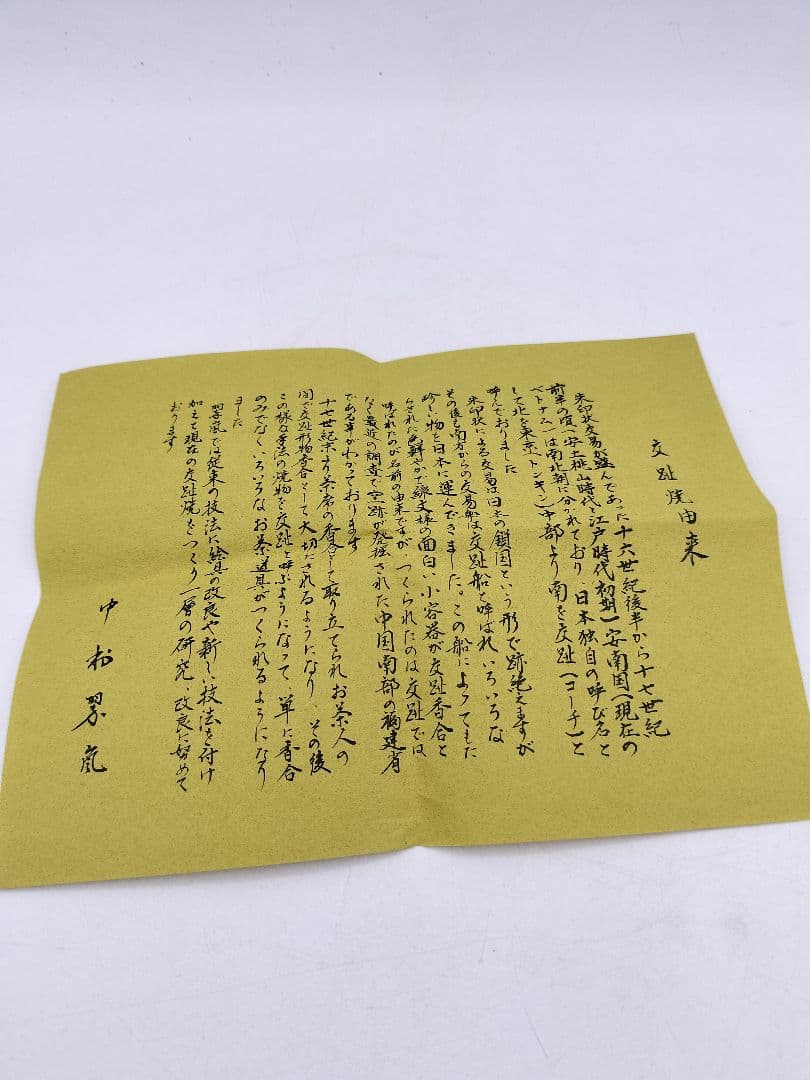 交趾焼由来
朱印状交易が盛んであった十六世紀後半から十七世紀
前半の頃(安土桃山時代と江戸時代初期)安南国(現在の
ベトナム)は南北朝に分かれており、日本独自の呼び名と
して北を東京(トンキン)中部より南を交趾(コーチ)と
呼んでおりました
朱印状による交易は日本の鎖国という形で跡絶えますが
その後も南方からの交易船は交趾船と呼ばれいろいろな
珍しい物を日本に運んできました。この船によってもた
らされた色鮮やかで線文様の面白い小容器が交趾香合と
呼ばれたのが名前の由来ですが、つくられたのは交趾では
なく最近の調査で窯跡が発掘された中国南部の福建省
である事がわかっております
十七世紀末より茶席の香合として取り立てられお茶人の
間で交趾形物香合として大切にされるようになり、その後
この様な手法の焼物を交趾と呼ぶようになって、単に香合
のみでなくいろいろなお茶道具がつくられるようになり
ました
翠嵐では従来の技法に絵具の改良や新しい技法を付け
加えて現在の交趾焼をつくり一層の研究・改良に努めて
おります
中村翠嵐